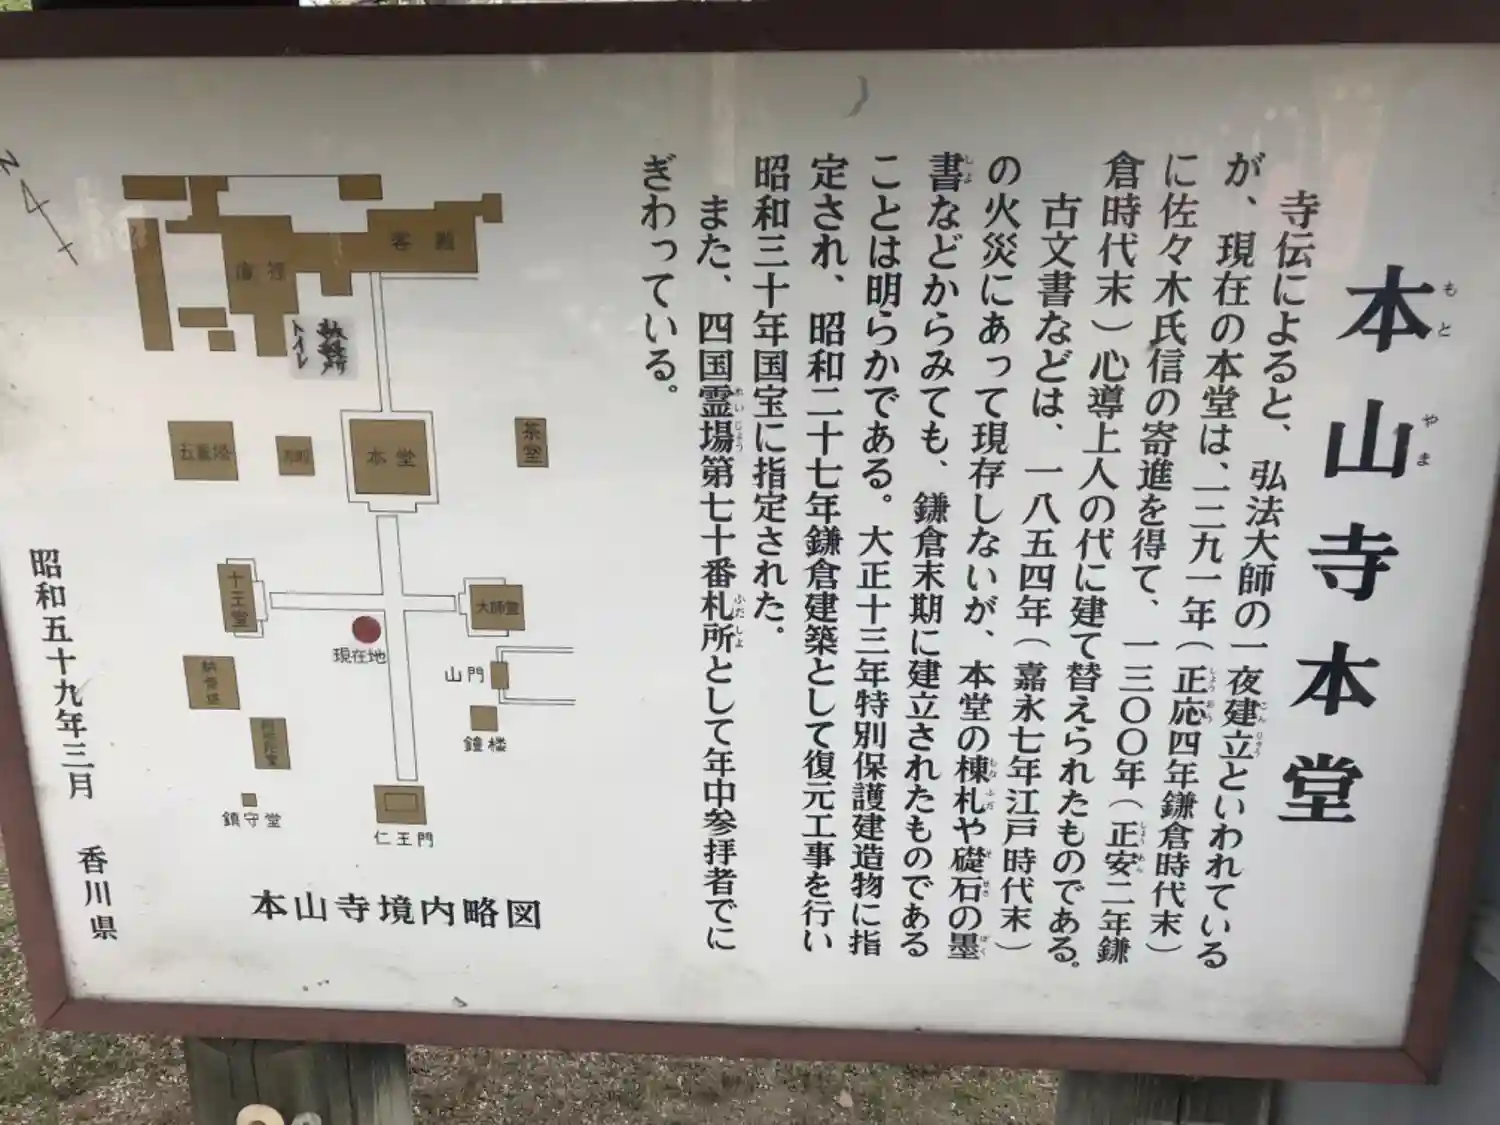 本山寺本堂
もとやま
寺伝によると、弘法大師の一夜建立といわれている
が、現在の本堂は、一二九一年(正応四年鎌倉時代末)
に佐々木氏信の寄進を得て、一三〇〇年(正安二年鎌
倉時代末)心導上人の代に建て替えられたものである。
古文書などは、一八五四年(嘉永七年江戸時代末)
の火災にあって現存しないが、本堂の棟札や礎石の墨
書などからみても、鎌倉末期に建立されたものである
ことは明らかである。大正十三年特別保護建造物に指
定され、昭和二十七年鎌倉建築として復元工事を行い
昭和三十年国宝に指定された。
また、四国霊場第七十番札所として年中参拝者でに
ぎわっている。
N
客殿
庫裡
納経所
トイレ
五重塔
本堂
茶室
十王堂
大師堂
現在地
山門
鐘楼
鎮守堂
仁王門
本山寺境内略図
昭和五十九年三月 香川県